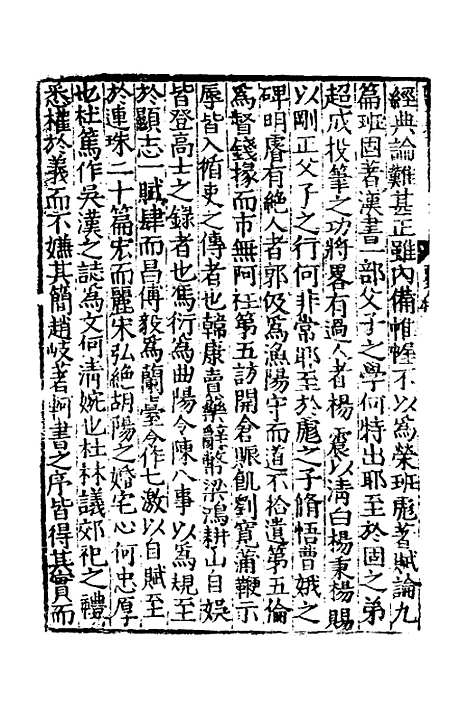 經典論難甚正雖內備帷幄不以為榮班彪著賦論九
篇班固著漢書一部父子之學何特出耶至於固之弟
超成投筆之功將畧有過人者楊震以清白楊秉楊賜
以剛正父子之行何非常耶至於彪之子脩悟曹娥之
碑明睿有絕人者郭伋為漁陽守而道不拾遺第五倫
為督錢掾而市無阿枉第五訪開倉賑飢劉寬蒲鞭示
辱皆入循吏之傳者也韓康賣藥辭幣梁鴻耕山自娛
皆登高士之錄者也馮衍為曲陽令陳八事以為規至
於顯志一賦肆而昌傅毅為蘭臺令作七激以自賦至
於連珠二十篇宏而麗宋弘絕胡陽之婚宅心何忠厚
也杜篤作吳漢之誌為文何清婉也杜林議郊祀之禮
悉權於義而不嫌其簡趙岐著軻書之序皆得其實而